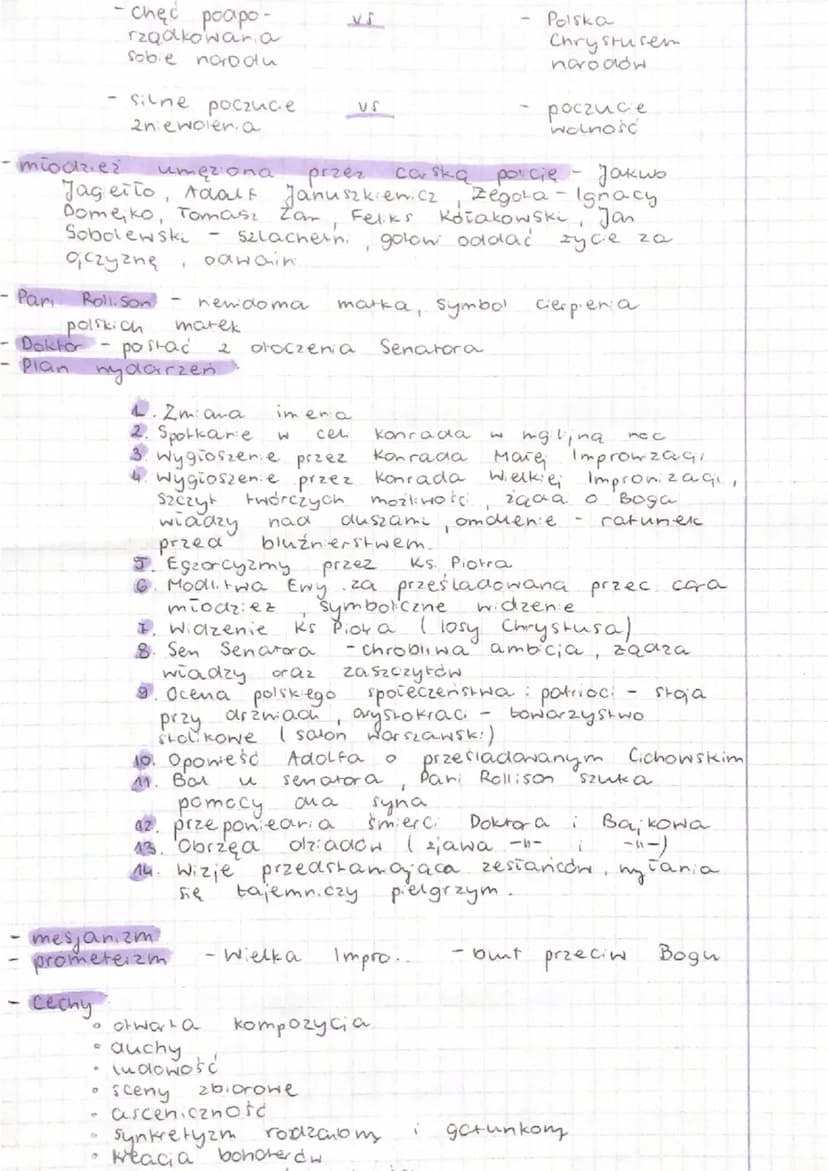 - chęć podpo- vs - Polska
rządkowania Chrystusem
sobie narodu narodów
- silne poczucie vs - poczucie
zniewolenia wolność
- młodzież umęziona przez carską policję - Jakub
Jagiełło, Adolf Januszkiewicz, Żegota - Ignacy
Domejko, Tomasz Zan, Feliks Kółakowski, Jan
Sobolewski - szlachetni, gotowi oddać życie za
ojczyznę, odważni
- Pani Rollison - niewidoma matka, symbol cierpienia
polskich matek
- Doktor - postać z otoczenia Senatora
- Plan wydarzeń
1. Zmiana imienia
2. Spotkanie w celi Konrada w wigilijną noc
3. Wygłoszenie przez Konrada Małej Improwizacji
4. Wygłoszenie przez Konrada Wielkiej Improwizacji,
szczyt twórczych możliwości, żąda o Boga
władzy nad duszami, omdlenie - ratunek
przed bluźnierstwem.
5. Egzorcyzmy przez Ks. Piotra
6. Modlitwa Ewy za prześladowaną przec cara
młodzież, symboliczne widzenie
7. Widzenie Ks Piotra (losy Chrystusa)
8. Sen Senatora - chrobliwa ambicja, żądza
władzy oraz zaszczytów
9. Ocena polskiego społeczeństwa: patrioci - stoją
przy drzwiach, arystokraci - towarzystwo
stolikowe (salon warszawski)
10. Opowieść Adolfa o prześladowanym Cichowskim
11. Bal u senatora, Pani Rollison szuka
pomocy dla syna
12. przepowiednia śmierci Doktora i Bajkowa
13. Obrzęd dziadów (zjawa -||- i -||-)
14. Wizje przedstawiająca zesłańców, wyłania
się tajemniczy pielgrzym.
- mesjanizm
- prometeizm - Wielka Impro.. - bunt przeciw Bogu
- Cechy
• otwarta kompozycja
• duchy
• ludowość
• sceny zbiorowe
• asceniczność
• synkretyzm rodzajowy i gatunkowy
• kreacja bohaterów